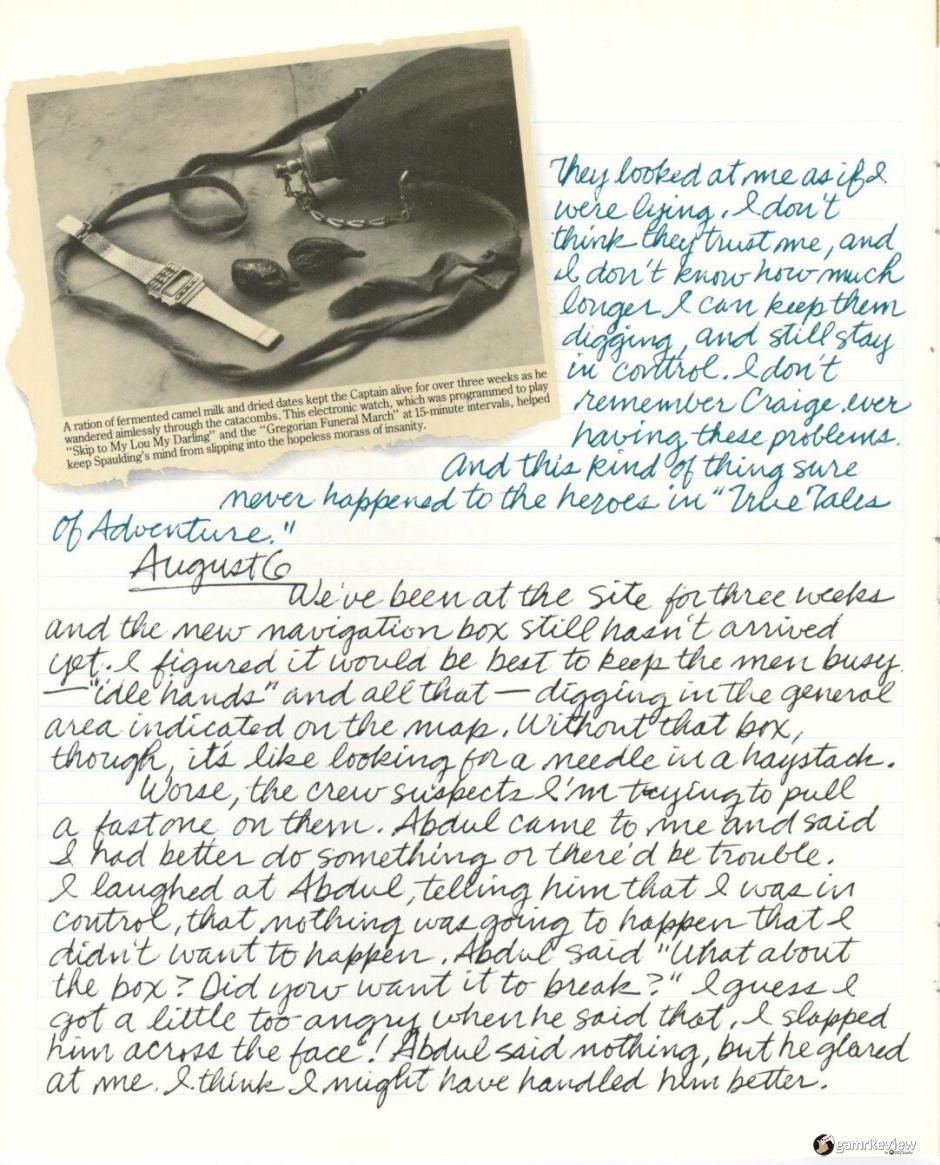 A ration of fermented camel milk and dried dates kept the Captain alive for over three weeks as he
wandered aimlessly through the catacombs. This electronic watch, which was programmed to play
"Skip to My Lou My Darling" and the "Gregorian Funeral March" at 15-minute intervals, helped
keep Spaulding's mind from slipping into the hopeless morass of insanity.
They looked at me as if I
were lying. I don't
think they trust me, and
I don't know how much
longer I can keep them
digging, and still stay
in control. I don't
remember Craige ever
having these problems.
And this kind of thing sure
never happened to the heroes in "True Tales
of Adventure."
August 6
We've been at the site for three weeks
and the new navigation box still hasn't arrived
yet. I figured it would be best to keep the men busy
—"idle hands" and all that — digging in the general
area indicated on the map. Without that box,
though, it's like looking for a needle in a haystack.
Worse, the crew suspects I'm trying to pull
a fast one on them. Abdul came to me and said
I had better do something or there'd be trouble.
I laughed at Abdul, telling him that I was in
control, that nothing was going to happen that I
didn't want to happen. Abdul said "What about
the box? Did you want it to break?" I guess I
got a little too angry when he said that. I slapped
him across the face! Abdul said nothing, but he glared
at me. I think I might have handled him better.
gamrReview